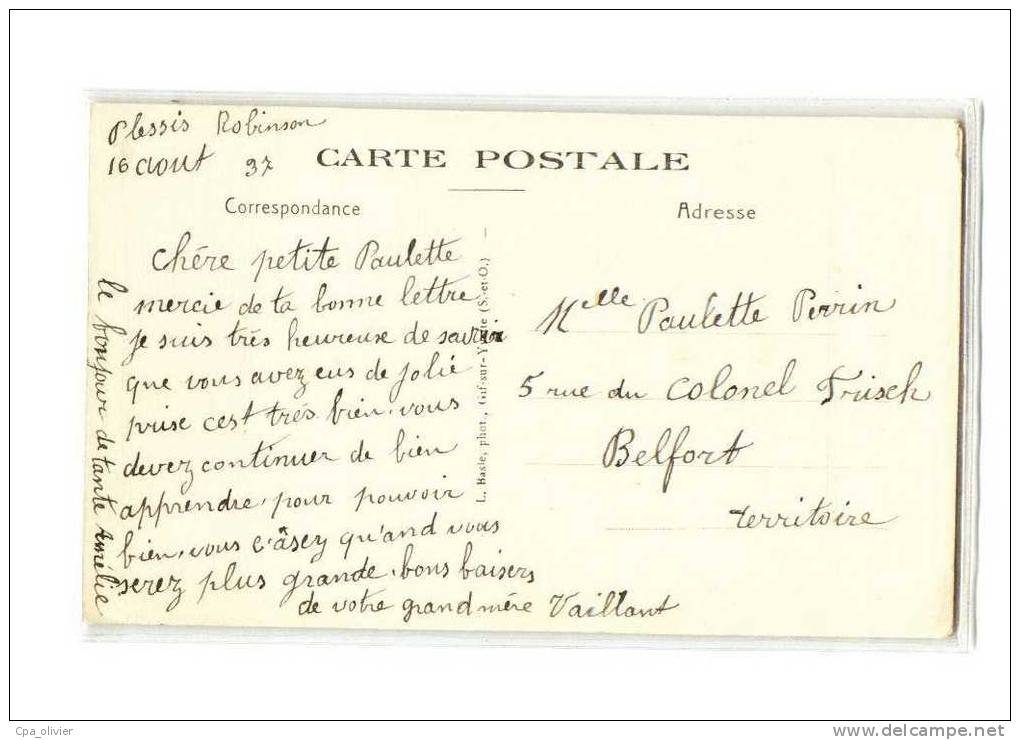 Plessis Robinson
16 aout 37
CARTE POSTALE
Correspondance
Adresse
Chére petite Paulette
mercie de ta bonne lettre
je suis trés heureuse de savoir
que vous avez eus de jolie
prise cest trés bien. vous
devez continuer de bien
apprendre. pour pouvoir
bien. vous câsey qu'and vous
serez plus grande. bons baisers
de votre grand mére Vaillant
le bonjour de tante Amélie
L. Basle, phot., Gif-sur-Yvette (S.-et-O.)
Melle Paulette Perrin
5 rue du Colonel Frisch
Belfort
territoire
Cpa_olivier
delcampe.net